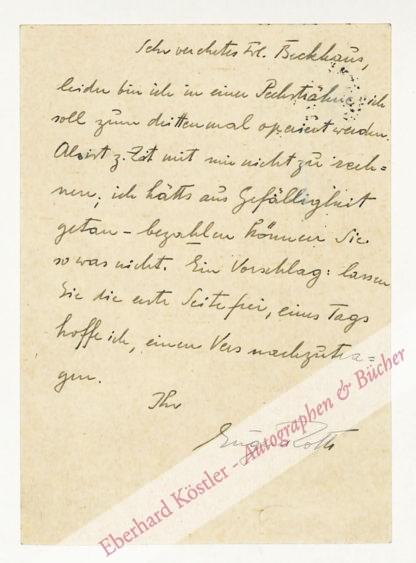 Sehr verehrtes Frl. Beckhaus,
leider bin ich in einer Pechsträhne: ich
soll zum drittenmal operiert werden.
Also ist z. Zt mit mir nicht zu rech=
nen; ich hätts aus Gefälligkeit
getan – bezahlen können Sie
so was nicht. Ein Vorschlag: lassen
Sie die erste Seite frei, eines Tags
hoffe ich, einen Vers nachzutra=
gen.
Ihr
Eugen Roth
Eberhard Köstler - Autographen & Bücher